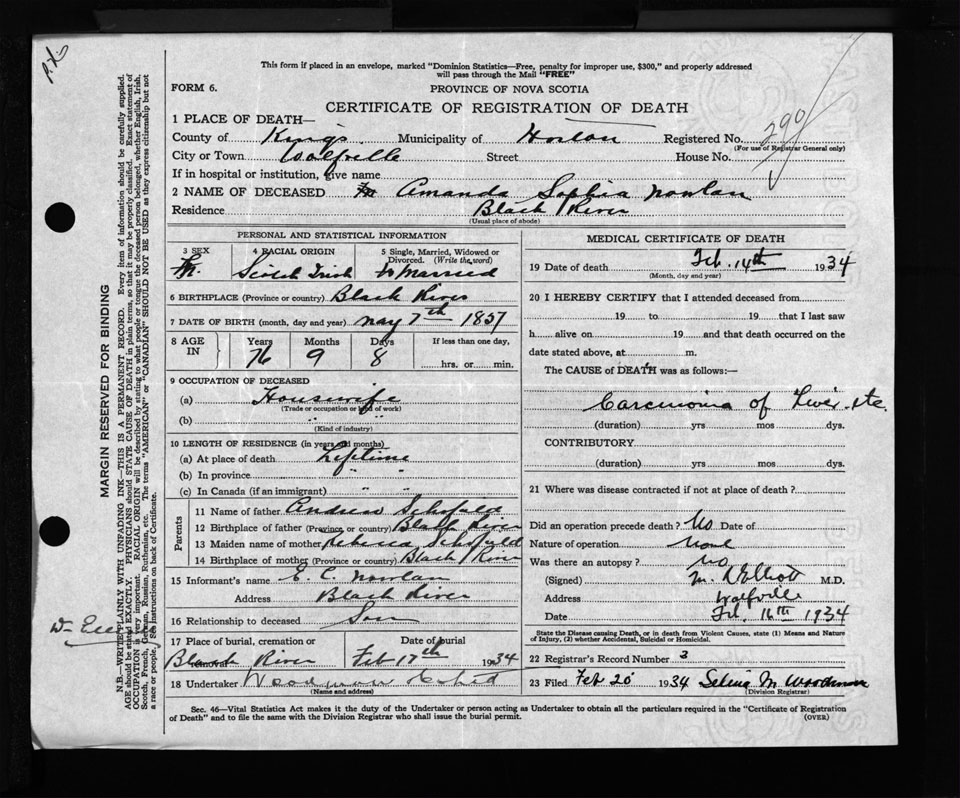 P.X.
This form if placed in an envelope, marked "Dominion Statistics—Free, penalty for improper use, $300," and properly addressed
will pass through the Mail "FREE"
FORM 6.
PROVINCE OF NOVA SCOTIA
CERTIFICATE OF REGISTRATION OF DEATH
1 PLACE OF DEATH—
County of Kings Municipality of Horton Registered No. 290
(For use of Registrar General only)
City or Town Wolfville Street House No.
If in hospital or institution, give name
2 NAME OF DECEASED Amanda Sophia Nowlan
Residence Black River
(Usual place of abode)
PERSONAL AND STATISTICAL INFORMATION
3 SEX 4 RACIAL ORIGIN 5 Single, Married, Widowed or Divorced. (Write the word)
Scotch Irish Married
6 BIRTHPLACE (Province or country) Black River
7 DATE OF BIRTH (month, day and year) May 7th 1857
8 AGE IN Years Months Days If less than one day,
76 9 8 hrs. or min.
9 OCCUPATION OF DECEASED
(a) Housewife
(Trade or occupation or kind of work)
(b) "
(Kind of industry)
10 LENGTH OF RESIDENCE (in years and months)
(a) At place of death Lifetime
(b) In province " "
(c) In Canada (if an immigrant) " "
Parents
11 Name of father Andrew Schofield
12 Birthplace of father (Province or country) Black River
13 Maiden name of mother Rebecca Schofield
14 Birthplace of mother (Province or country) Black River
15 Informant's name E. C. Nowlan
Address Black River
16 Relationship to deceased Son
17 Place of burial, cremation or Date of burial
Black River Feb 17th 1934
18 Undertaker Woodman
(Name and address)
MEDICAL CERTIFICATE OF DEATH
19 Date of death Feb. 14th 1934
(Month, day and year)
20 I HEREBY CERTIFY that I attended deceased from
19 to 19 that I last saw
h alive on 19 and that death occurred on the
date stated above, at m.
The CAUSE of DEATH was as follows:—
Carcinoma of Liver etc.
(duration) yrs mos dys.
CONTRIBUTORY
(duration) yrs mos dys.
21 Where was disease contracted if not at place of death?
Did an operation precede death? No Date of
Nature of operation None
Was there an autopsy? No
(Signed) M. R. Elliott M.D.
Address Wolfville
Date Feb. 16th 1934
State the Disease causing Death, or in death from Violent Causes, state (1) Means and Nature
of Injury, (2) whether Accidental, Suicidal or Homicidal.
22 Registrar's Record Number 3
23 Filed Feb 20 1934 Selina M Woodman
(Division Registrar)
Sec. 46—Vital Statistics Act makes it the duty of the Undertaker or person acting as Undertaker to obtain all the particulars required in the "Certificate of Registration
of Death" and to file the same with the Division Registrar who shall issue the burial permit.
(OVER)
MARGIN RESERVED FOR BINDING
N.B.—WRITE PLAINLY WITH UNFADING INK—THIS IS A PERMANENT RECORD. Every item of information should be carefully supplied.
AGE should be stated EXACTLY. PHYSICIANS should STATE CAUSE OF DEATH in plain terms, so that it may be properly classified. Exact statement of
OCCUPATION is very important. RACIAL ORIGIN will be described by stating to what people or tongue the deceased person belonged, whether English, Irish,
Scotch, French, German, Russian, Ruthenian, etc. The terms "AMERICAN" or "CANADIAN" SHOULD NOT BE USED as they express citizenship but not
a race or people. See instructions on back of Certificate.